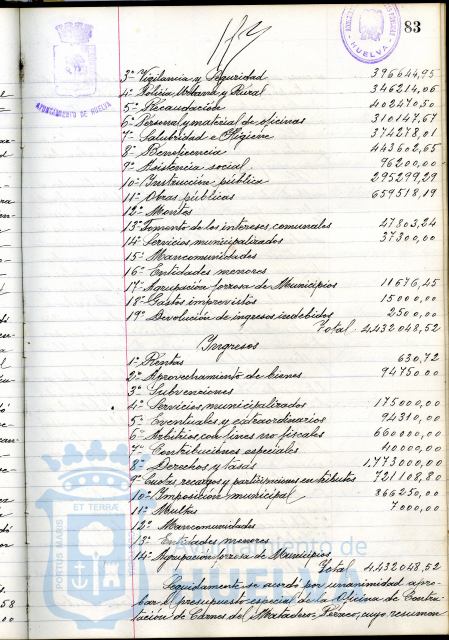 83
AYUNTAMIENTO DE HUELVA
HUELVA
3º Vigilancia y Seguridad 396644,95
4º Policía Urbana y Rural 346214,06
5º Recaudación 40247050
6º Personal y material de oficinas 310147,67
7º Salubridad e Higiene 374278,01
8º Beneficencia 443602,65
9º Asistencia social 96200,00
10º Instrucción pública 295299,29
11º Obras públicas 659518,19
12º Montes
13º Fomento de los intereses comunales 27803,24
14º Servicios municipalizados 37300,00
15º Mancomunidades
16º Entidades menores
17º Agrupación forzosa de Municipios 11676,45
18º Gastos imprevistos 15000,00
19º Devolución de ingresos indebidos 2500,00
Total 4.432.048,52
Ingresos
1º Rentas 630,72
2º Aprovechamiento de bienes 94750,00
3º Subvenciones
4º Servicios municipalizados 175000,00
5º Eventuales y extraordinarios 94310,00
6º Arbitrios con fines no fiscales 660000,00
7º Contribuciones especiales 40000,00
8º Derechos y tasas 1.773000,00
9º Cuotas, recargos y participaciones en tributos 721108,80
10º Imposición municipal 866250,00
11º Multas 7000,00
12º Mancomunidades
13º Entidades menores
14º Agrupación forzosa de Municipios
Total 4.432048,52
Seguidamente se acordó por unanimidad apro-
bar el presupuesto especial de la Oficina de Contra-
tación de Carnes del Matadero-Férreo, cuyo resumen
PORTUS MARIS ET TERRAE
Ayuntamiento de